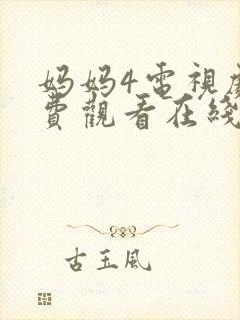 妈妈4電視劇
費觀看在綫
古玉風